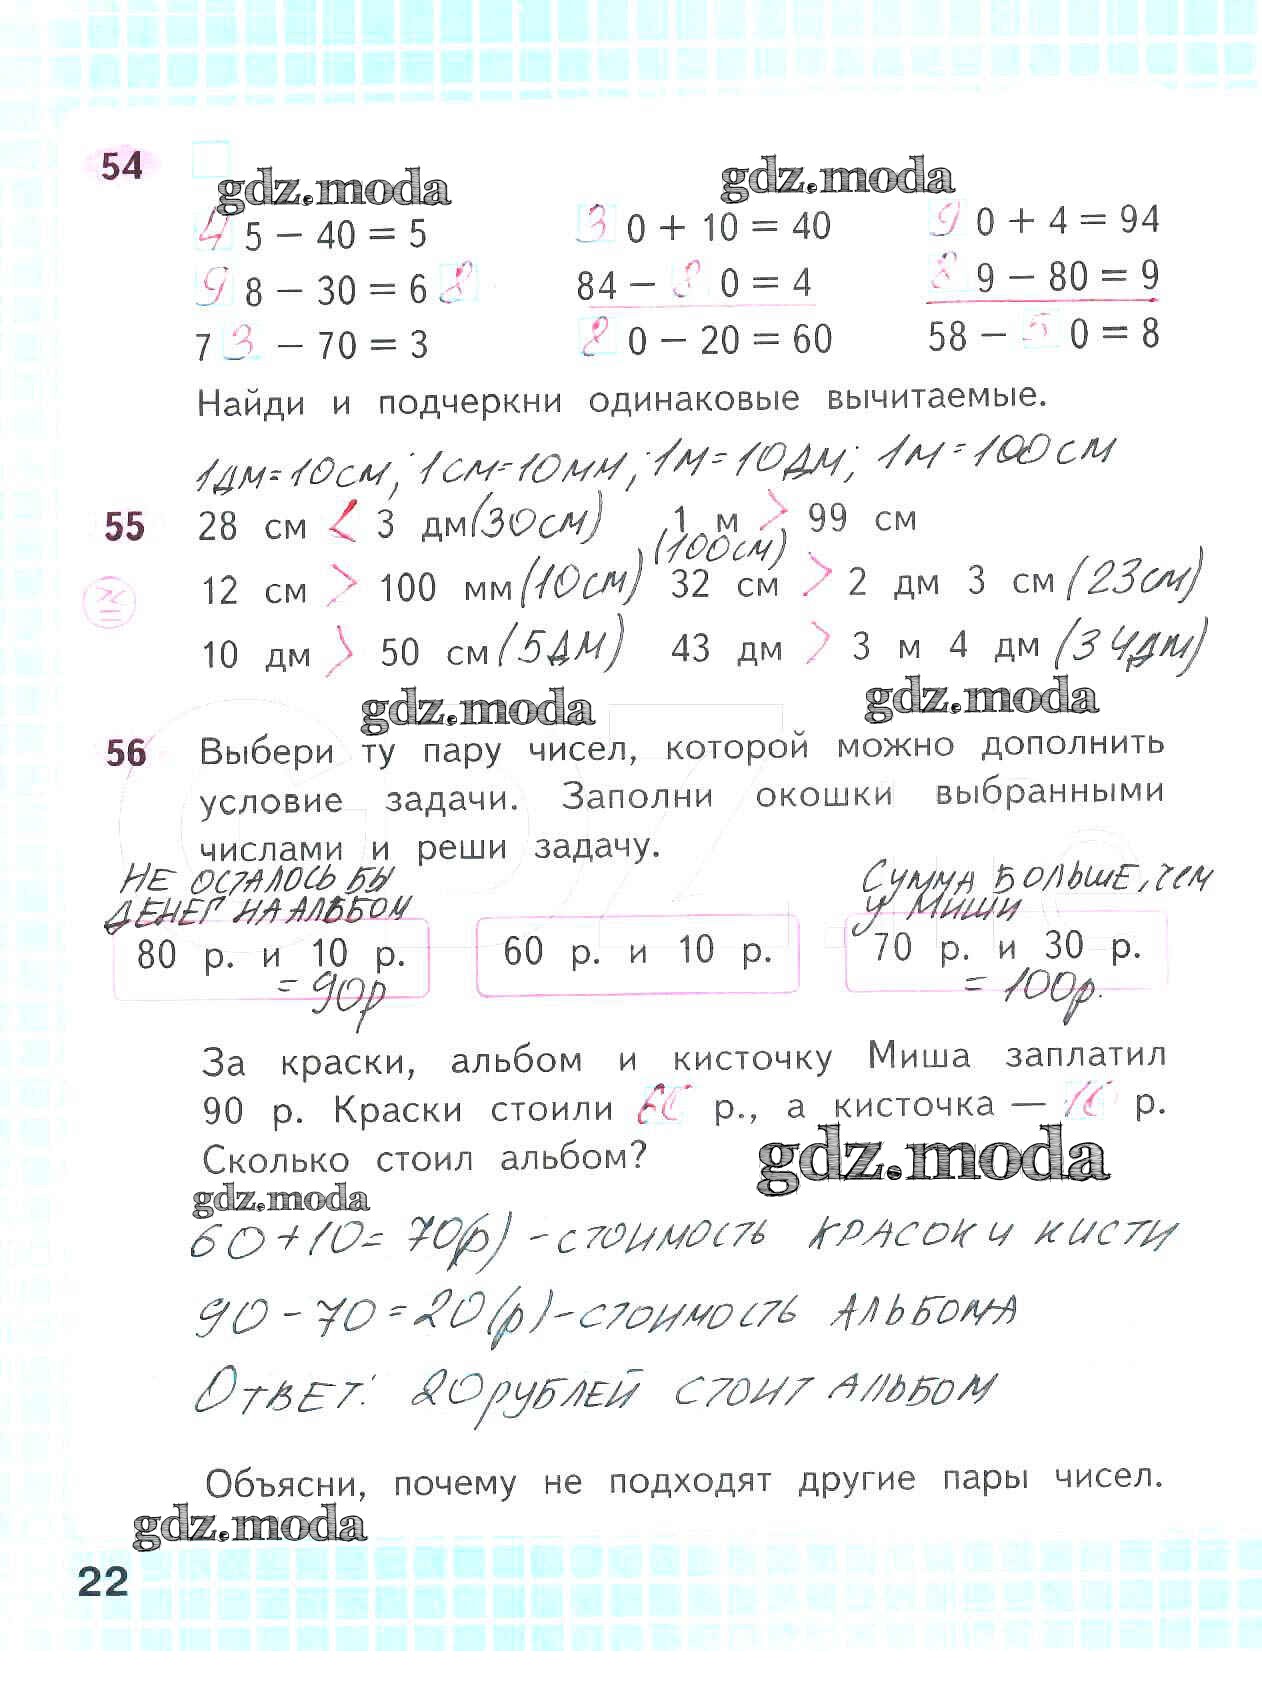 54
gdz.moda gdz.moda
45 – 40 = 5 30 + 10 = 40 90 + 4 = 94
98 – 30 = 68 84 – 80 = 4 89 – 80 = 9
73 – 70 = 3 80 – 20 = 60 58 – 50 = 8
Найди и подчеркни одинаковые вычитаемые.
1дм=10см, 1см=10мм, 1м=10дм; 1м=100см
55 28 см < 3 дм (30см) 1 м > 99 см
(100см)
12 см > 100 мм (10см) 32 см > 2 дм 3 см (23см)
10 дм > 50 см (5дм) 43 дм > 3 м 4 дм (34дм)
gdz.moda gdz.moda
56 Выбери ту пару чисел, которой можно дополнить
условие задачи. Заполни окошки выбранными
числами и реши задачу.
НЕ ОСТАЛОСЬ БЫ СУММА БОЛЬШЕ, ЧЕМ
ДЕНЕГ НА АЛЬБОМ У МИШИ
80 р. и 10 р. 60 р. и 10 р. 70 р. и 30 р.
= 90р = 100р.
За краски, альбом и кисточку Миша заплатил
90 р. Краски стоили 60 р., а кисточка — 10 р.
Сколько стоил альбом?
gdz.moda
gdz.moda
60+10= 70(р) - СТОИМОСТЬ КРАСОК И КИСТИ
90-70=20(р)-СТОИМОСТЬ АЛЬБОМА
ОТВЕТ: 20 РУБЛЕЙ СТОИТ АЛЬБОМ
Объясни, почему не подходят другие пары чисел.
gdz.moda
22